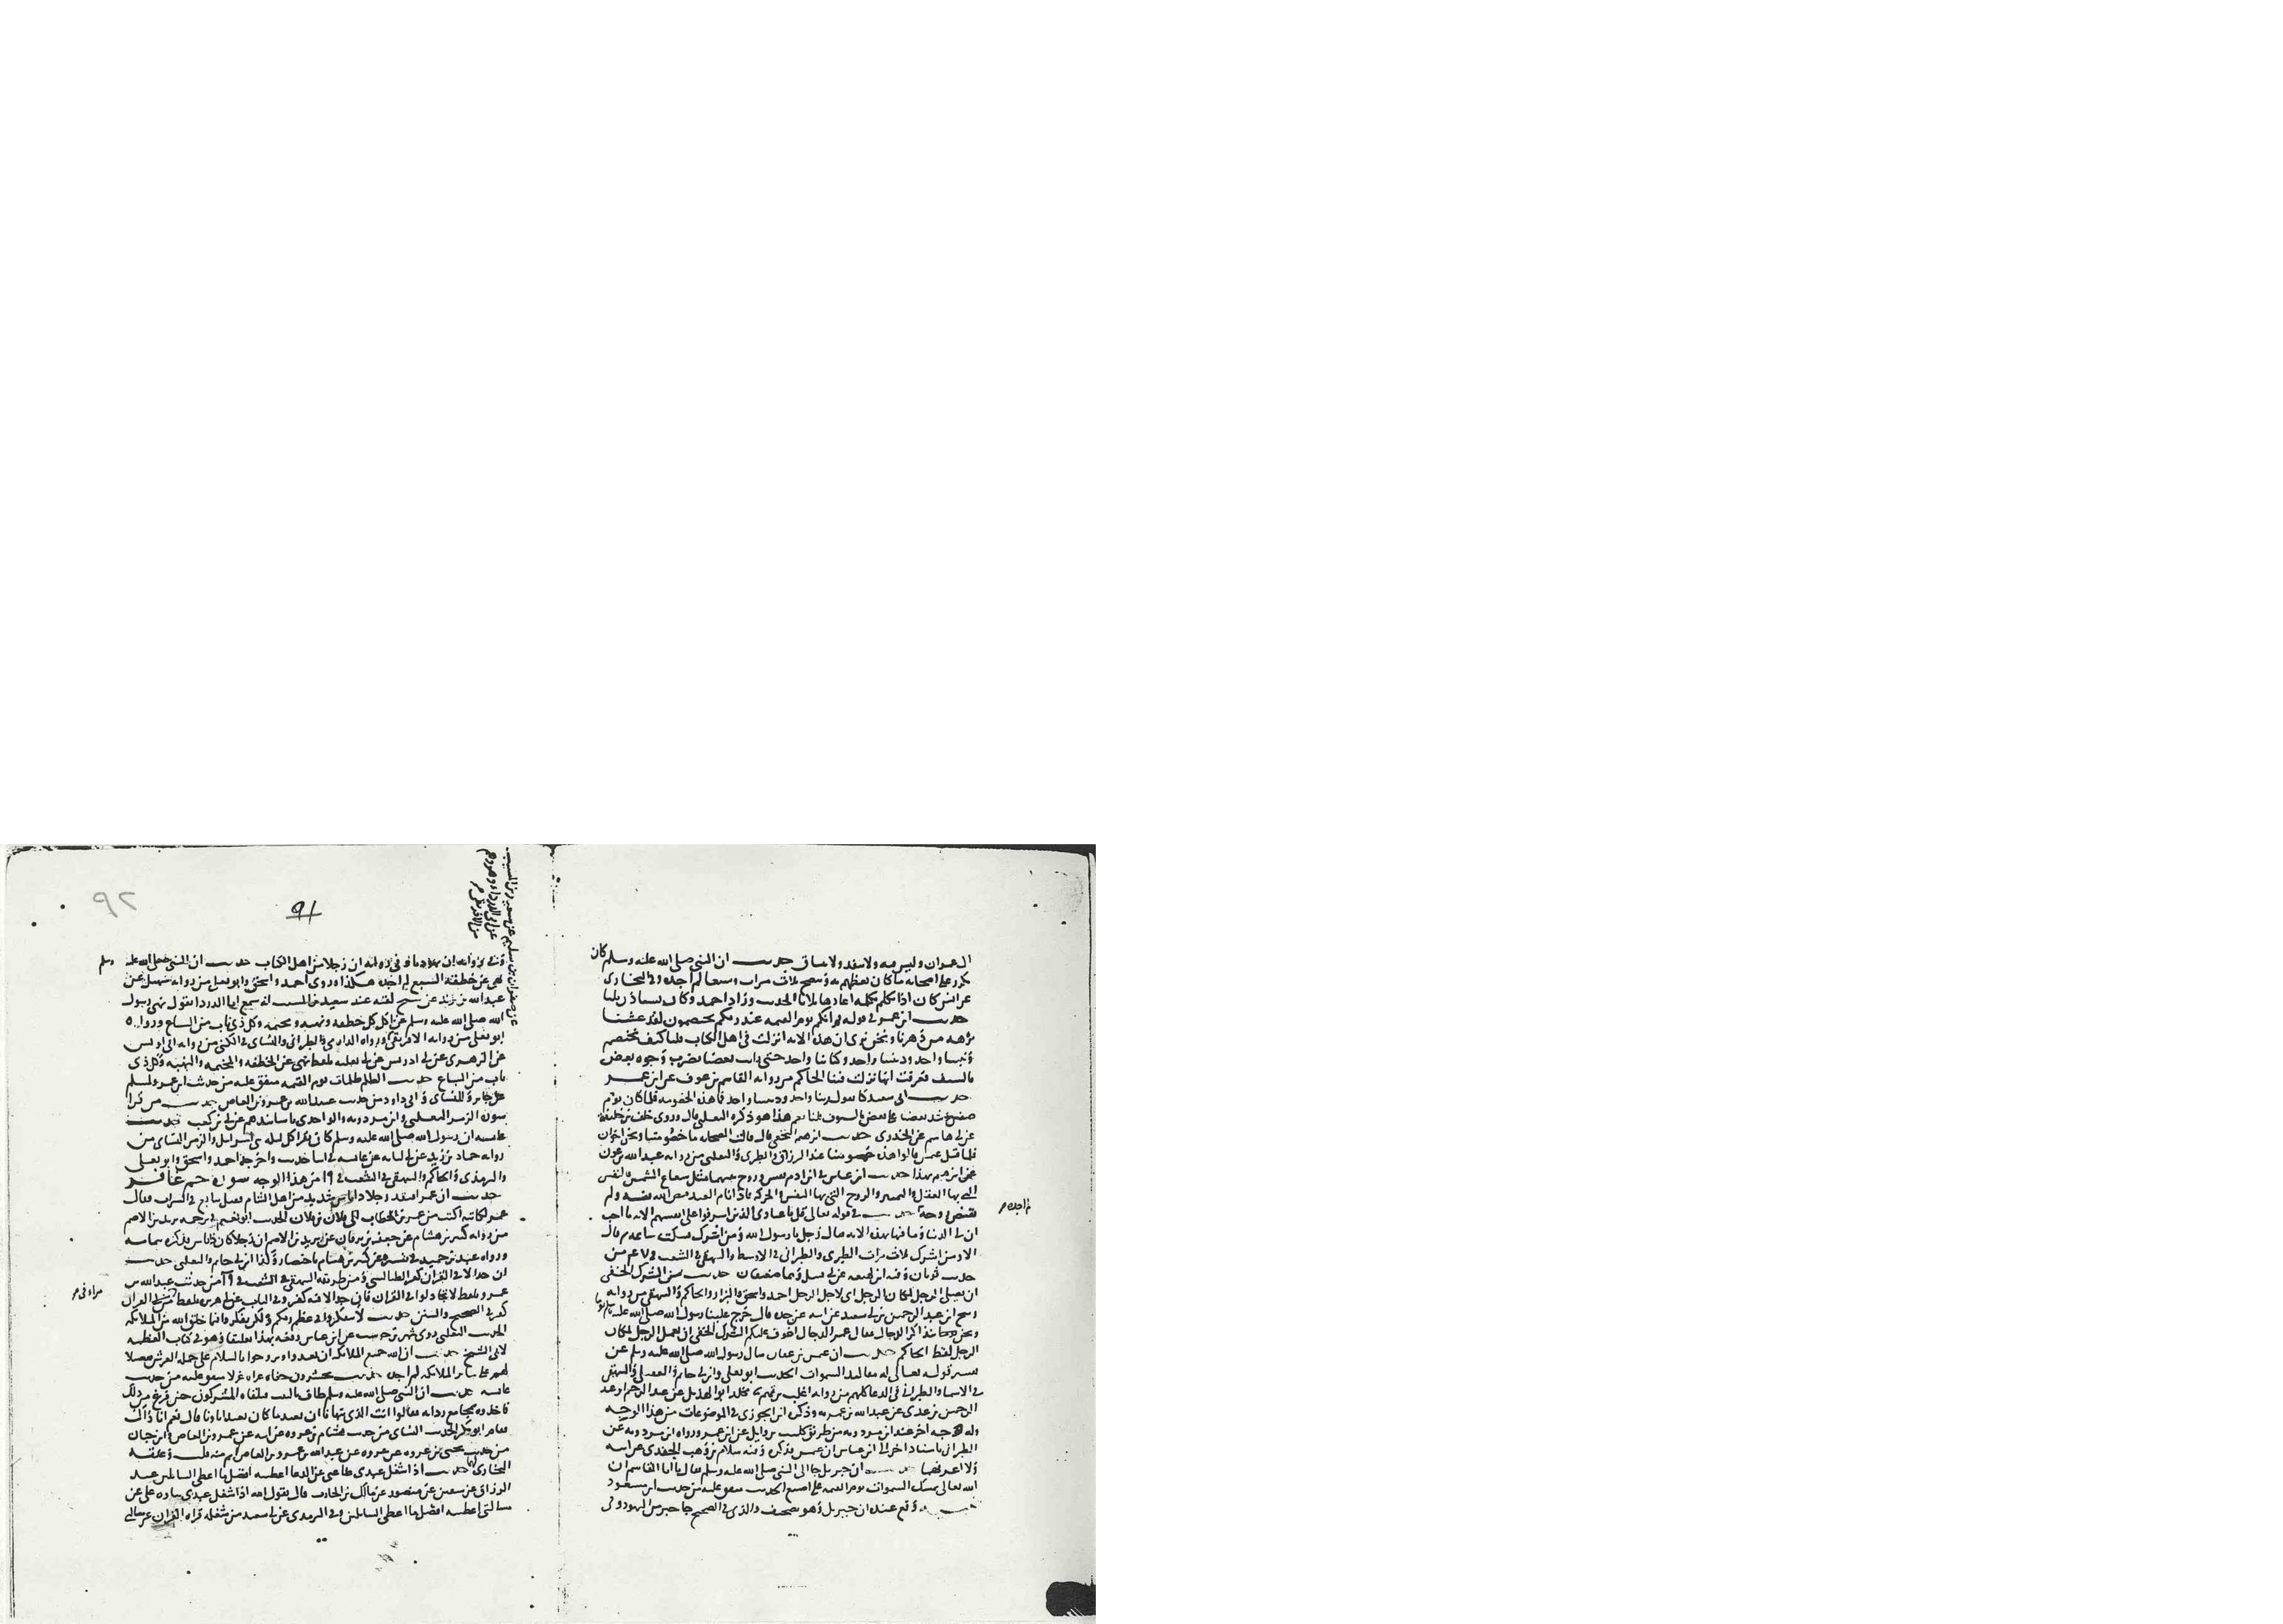 ال عمران وليس فيه ولا بعده ولا ساق حديث ان النبي صلى الله عليه وسلم كان
يكرر على اصحابه ما كان يعظهم به وينصح ثلاث مرات وسبعا لم اجده وفي البخاري
عن انس كان اذا تكلم بكلمة اعادها ثلاثا الحديث وزاد احمد وكان يستاذن ثلثا
حديث ابن عمر في قوله ثم انكم يوم القيمة عند ربكم تختصمون لقد عشنا
برهة من دهرنا ونحن نرى ان هذه الاية انزلت في اهل الكتاب قلنا كيف نختصم
ونبينا واحد وديننا واحد وكتابنا واحد حتى رايت بعضنا يضرب وجوه بعض
بالسيف فعرفت انها نزلت فينا الحاكم من رواية القاسم بن عوف عن ابن عمر
حديث ابي سعيد كنا نقول ربنا واحد وديننا واحد فما هذه الخصومة فلما كان يوم
صفين شد بعضنا على بعض بالسيوف قلنا نعم هذا هو ذكره الثعلبي قال وروى خلف بن خليفة
عن ابي هاشم عن الخدري حديث ابرهيم النخعي قال قالت الصحابة ما خصومتنا ونحن اخوان
فلما قتل عثمن قالوا هذه خصومتنا عبد الرزاق والطبري والثعلبي من رواية عبد الله بن عون
عن ابرهيم بهذا حديث ابن عباس في ابن ادم نفس وروح بينهما مثل شعاع الشمس فالنفس
التي بها العقل والتمييز والروح التي بها النفس والحركة فاذا نام العبد قبض الله نفسه ولم
يقبض روحه حديث في قوله تعالى قل يا عبادي الذين اسرفوا على انفسهم الاية ما احب
لم اجده
ان لي الدنيا وما فيها بهذه الاية فقال رجل يا رسول الله ومن اشرك فسكت ساعة ثم قال
الا ومن اشرك ثلاث مرات الطبري والطبراني في الاوسط والبيهقي في الشعب في من
حديث ثوبان وفيه ابن لهيعة عن ابي قبيل وهما ضعيفان حديث من الشرك الخفي
ان يصلي الرجل لمكان الرجل اي لاجل الرجل احمد واسحق والبزار والحاكم والبيهقي من رواية
ربيح ابن عبد الرحمن بن ابي سعيد عن ابيه عن جده قال خرج علينا رسول الله صلى الله عليه
ونحن نتذاكر الدجال فقال غير الدجال اخوف عليكم الشرك الخفي ان يعمل الرجل لمكان
الرجل لفظ الحاكم حديث ان عثمن بن عفان سال رسول الله صلى الله عليه وسلم عن
تفسير قوله تعالى له مقاليد السموات الحديث ابو يعلى وابن ابي حاتم والعقيلي والبيهقي
في الاسما والطبراني في الدعا كلهم من رواية اغلب بن تميم مخلد ابو الهذيل عن عبد الرحمن
عن عبد الله بن عمر به وذكره ابن الجوزي في الموضوعات من هذا الوجه
وله وجه اخر عند ابن مردويه من طريق كليب بن وايل عن ابن عمر ورواه ابن مردويه عن
الطبراني باسناد اخر الى ابن عباس ان عثمن فذكره وفيه سلام بن وهب الجندي عن ابيه
ولا اعرفهما حديث ان جبريل جا الى النبي صلى الله عليه وسلم فقال يا ابا القاسم ان
الله تعالى يمسك السموات يوم القيمة على اصبع الحديث متفق عليه من حديث ابن مسعود
وقع عنده ان جبريل وهو تصحيف والذي في الصحيح جا حبر من اليهود وفي
91
٩٢
عن صفوان بن سليم عن سعيد بن المسيب
عن ابي الدرداء
من الافريقي
وفي رواية ان رجلا من اهل الكتاب حديث ان النبي صلى الله عليه وسلم
نهى عن خطفة السبع لم اجده هكذا وروى احمد واسحق وابو يعلى من رواية سهيل عن
عبد الله بن يزيد عن شيخ لقيه عند سعيد بن المسيب انه سمع ابا الدردا يقول نهى رسول
الله صلى الله عليه وسلم عن اكل كل خطفة ونهبة ومجثمة وكل ذي ناب من السباع ورواه
ابو يعلى من رواية الافريقي ورواه الدارمي والطبراني والنساي في الكنى من رواية ابي اويس
عن الزهري عن ابي ادريس عن ابي ثعلبة بلفظ نهى عن الخطفة والمجثمة والنهبة وكل ذي
ناب من السباع حديث الظلم ظلمات يوم القيمة متفق عليه من حديث ابن عمر ولمسلم
عن جابر وللنساي وابي داود من حديث عبد الله بن عمرو بن العاص حديث من قرا
سورة الزمر الثعلبي وابن مردويه والواحدي باسانيدهم عن ابي بن كعب حديث
عايشة ان رسول الله صلى الله عليه وسلم كان يقرا كل ليلة بني اسرايل والزمر النساي من
رواية حماد بن زيد عن ابي لبابة عن عايشة في اثنا حديث واخرجه احمد واسحق وابو يعلى
والترمذي والحاكم والبيهقي في الشعب في ١٩ من هذا الوجه سورة حم غافر
حديث ان عمر افتقد رجلا ذا باس شديد من اهل الشام فقيل تتابع في الشراب فقال
عمر لكاتبه اكتب من عمر بن الخطاب الى فلان بن فلان الحديث ابو نعيم في ترجمة يزيد بن الاصم
من رواية كثير بن هشام عن جعفر بن برقان عن يزيد بن الاصم ان رجلا كان ذا باس فذكره بتمامه
ورواه عبد بن حميد في تفسيره عن كثير بن هشام باختصار وكذا ابن ابي حاتم والثعلبي حديث
ان جدالا في القران كفر الطيالسي ومن طريقه البيهقي في الشعب في من حديث عبد الله بن
عمرو بلفظ لا تجادلوا في القران فان جدالا فيه كفر وفي الباب عن ابي هريرة بلفظ مرا في القران
مراء في
كفر في الصحيح والسنن حديث لا تتفكروا في عظم ربكم ولكن تفكروا فيما خلق الله من الملايكة
الحديث الثعلبي روى شهر بن حوشب عن ابن عباس رفعه بهذا تعليقا وهو في كتاب العظمة
لابي الشيخ حديث ان الله جميع الملايكة ان يغدوا ويروحوا بالسلام على حملة العرش تفضيلا
لهم على ساير الملايكة لم اجده حديث يحشرون حفاة عراة غرلا متفق عليه من حديث
عايشة حديث ان النبي صلى الله عليه وسلم طاف بالبيت فتلقاه المشركون حين فرغ من ذلك
فاخذوه بمجامع ردايه فقالوا انت الذي تنهانا ان نعبد ما كان يعبد اباونا قال نعم انا ذاك
فقام ابو بكر الحديث النساي من حديث هشام بن عروة عن ابيه عن عمرو بن العاص وابن حبان
من حديث يحيى بن عروة عن عروة عن عبد الله بن عمرو بن العاص اتم منه قلت وعلقه
البخاري حديث اذا شغل عبدي طاعتي عن الدعا اعطيته افضل ما اعطي السايلين عبد
الرزاق عن سفين عن منصور عن مالك بن الحارث قال يقول الله اذا شغل عبدي ثناوه علي عن
مسالتي اعطيته افضل ما اعطي السايلين وفي الترمذي عن ابي سعيد من شغله قراة القران عن مسالتي